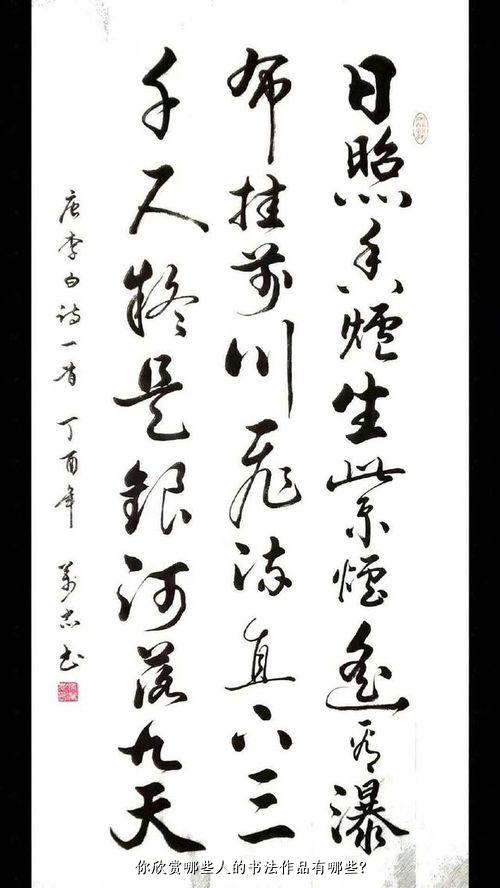 日照香爐生紫煙遙看瀑
布挂前川飛流直下三
千尺疑是銀河落九天
唐李白诗一首 丁酉年 萬忠书
你欣赏哪些人的书法作品有哪些?